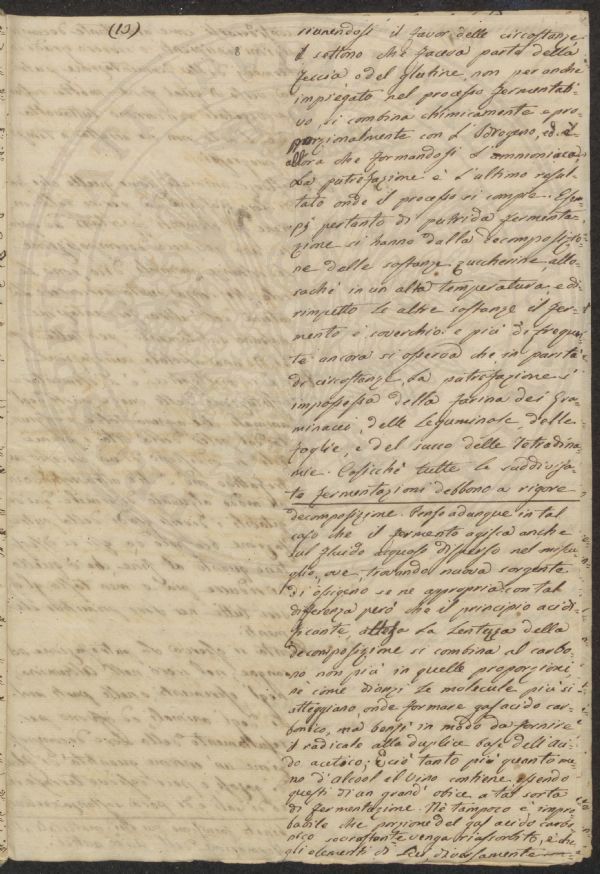 (15)
8
riunendosi il favor delle circostanze
il settono che faceva parte della
feccia o del glutine, non per anche
impiegato nel processo fermentati-
vo si combina chimicamente e pro-
porzionalmente con l'Idrogeno, ed è
allora che formandosi l'ammoniaca,
La putrefazione è l'ultimo resul-
tato onde il processo si compie. Esem-
pj pertanto di putrida fermenta-
zione si hanno dalla decomposizio-
ne delle sostanze zuccherine, allo-
rachè in un alta temperatura, e di
rimpetto le altre sostanze il fer-
mento è soverchio: e più di frequen-
te ancora si osserva che in parità
di circostanze, La putrefazione s'
impossessa della farina dei Gra-
minacei, delle Leguminose, delle
foglie, e del succo delle Tetradina-
mie. Cosicchè tutte le suddivisa-
te fermentazioni debbono a rigore
decomposizione. Penso adunque in tal
caso che il fermento agisca anche
sul fluido acquoso disperso nel miscu-
glio, ove, trovando nuova sorgente
di ossigeno se ne appropria con tal
differenza però che il principio acidi-
ficante, attesa La Lentezza della
decomposizione si combina al carbo-
no non più in quelle proporzioni
ne come dianzi Le molecule più si
atteggiano onde formare gas acido car-
bonico, mà bensì in modo da fornire
il radicale alla duplice base dell'Aci-
do acetoso; E ciò tanto più quanto me-
no d'alcool el vino contiene, essendo
questi di un grand'obice a tal sorta
di fermentazione. Nè tampoco è impro-
babile che porzione del gas acido carbo-
nico sovrastante venga riassorbito, e che
gli elementi di Lui, diversamente